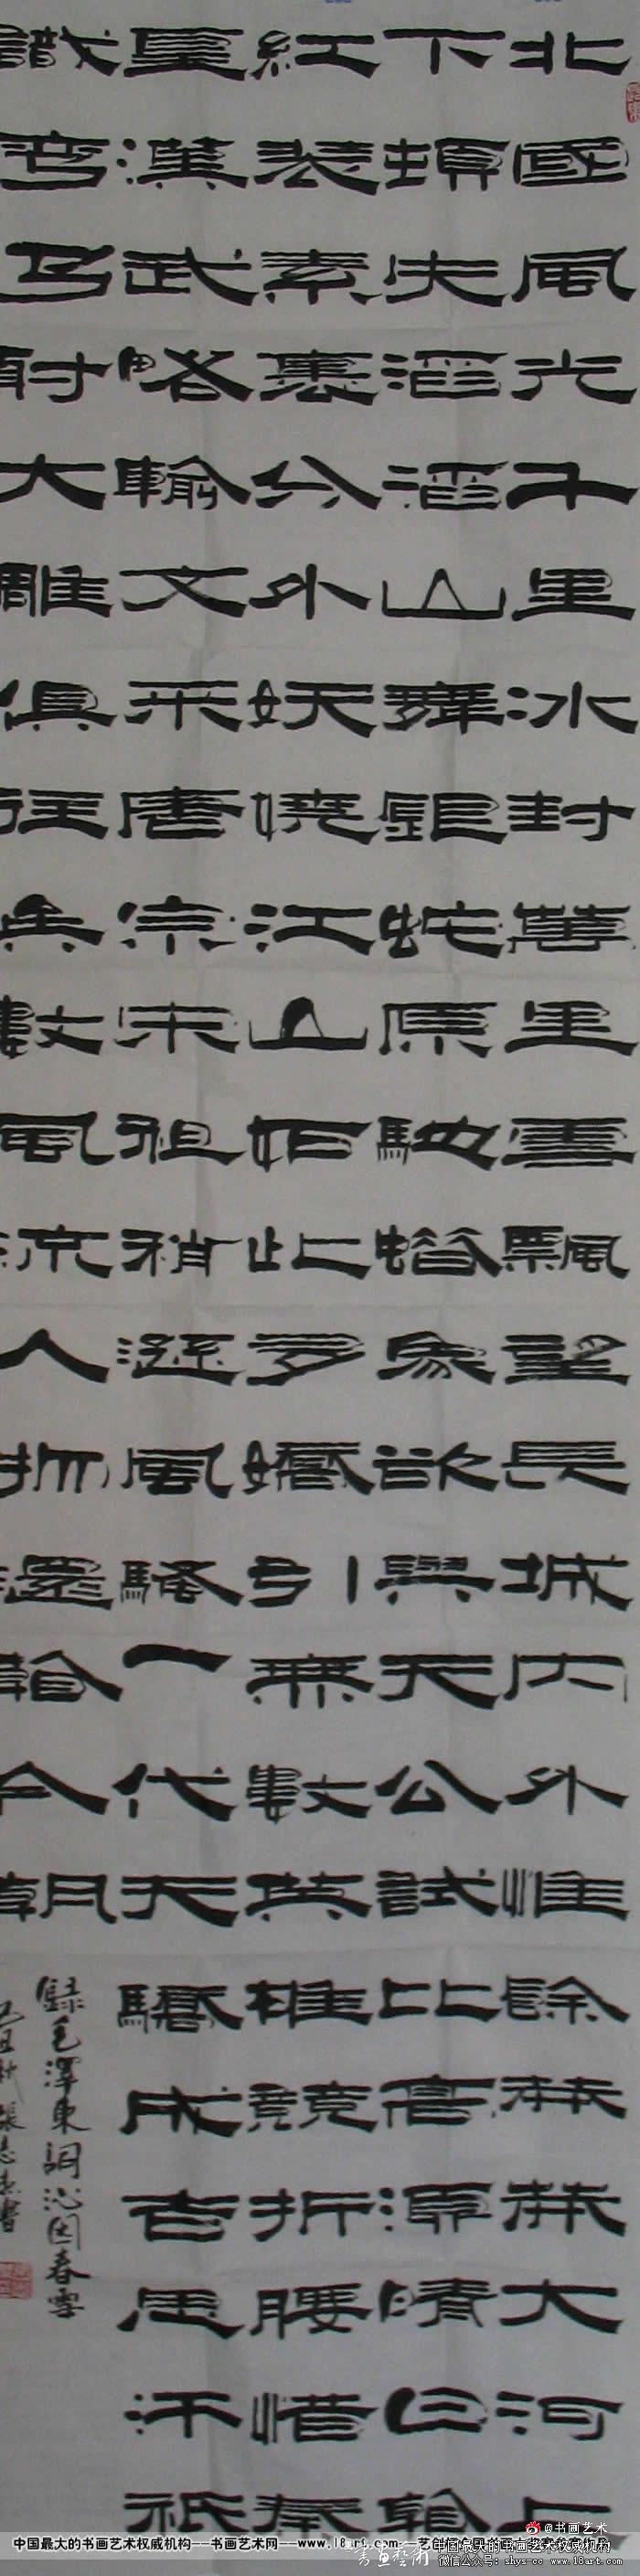 北國風光千里冰封萬里雪飄望長城內外惟餘莽莽大河上
下頓失滔滔山舞銀蛇原馳蠟象欲與天公試比高須晴日看
紅裝素裹分外妖嬈江山如此多嬌引無數英雄競折腰惜秦
皇漢武略輸文采唐宗宋祖稍遜風騷一代天驕成吉思汗祇
識彎弓射大雕俱往矣數風流人物還看今朝
錄毛澤東詞沁園春雪
己丑秋張志書
@书画艺术
中国最大的书画艺术权威机构--书画艺术网--www.18art.com--
微信公众号:shys-cc www.18art.com